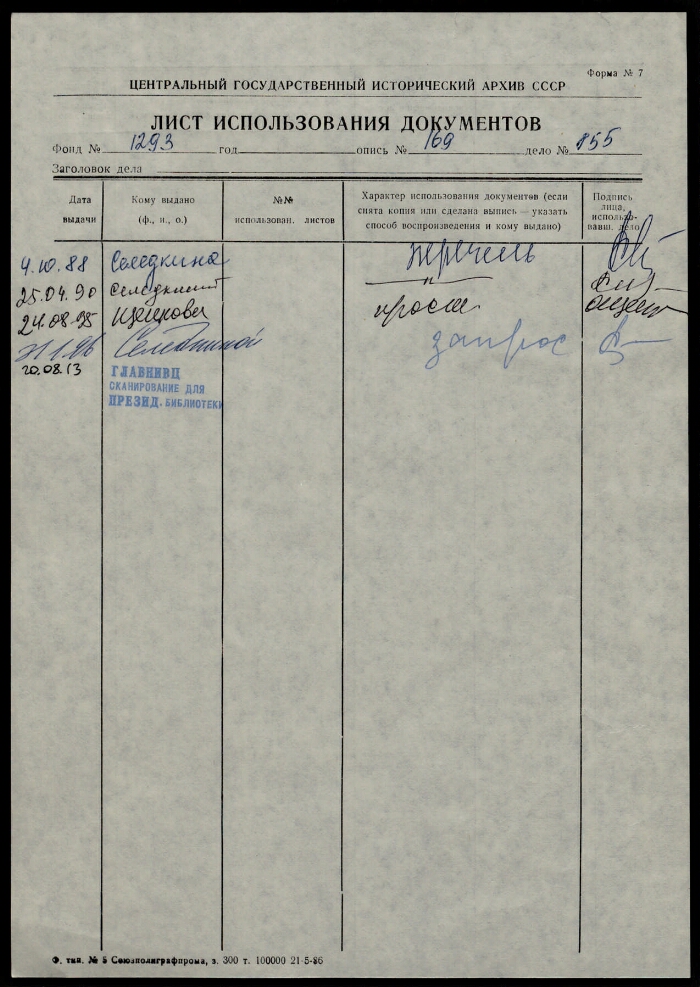 Форма № 7
ЦЕНТРАЛЬНЫЙ ГОСУДАРСТВЕННЫЙ ИСТОРИЧЕСКИЙ АРХИВ СССР
ЛИСТ ИСПОЛЬЗОВАНИЯ ДОКУМЕНТОВ
Фонд № 1293 год опись № 169 дело № 855
Заголовок дела
Дата выдачи
Кому выдано (ф., и., о.)
№№ использован. листов
Характер использования документов (если снята копия или сделана выпись — указать способ воспроизведения и кому выдано)
Подпись лица, использо-вавш. дело
4.10.88 Селедкина перечень
25.04.90 Селедкина —"—
24.08.95 просм.
Селедкиной запрос
20.08.13 ГЛАВНИВЦ
СКАНИРОВАНИЕ ДЛЯ
ПРЕЗИД. БИБЛИОТЕКИ
Ф. тип. № 5 Союзполиграфпрома, з. 300 т. 100000 21-5-86